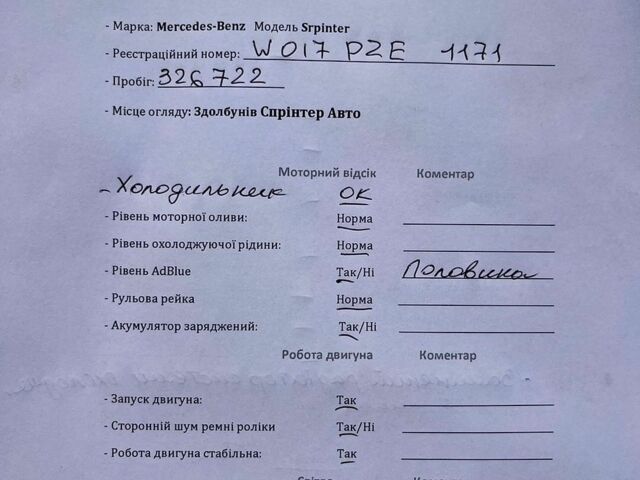 - Марка: Mercedes-Benz Модель Srpinter
- Реєстраційний номер: W 017 PZE 1171
- Пробіг: 326 722
- Місце огляду: Здолбунів Спрінтер Авто
Моторний відсік Коментар
- Холодильник ОК
- Рівень моторної оливи: Норма
- Рівень охолоджуючої рідини: Норма
- Рівень AdBlue Так/Ні Половина
- Рульова рейка Норма
- Акумулятор заряджений: Так/Ні
Робота двигуна Коментар
- Запуск двигуна: Так
- Сторонній шум ремні роліки Так/Ні
- Робота двигуна стабільна: Так